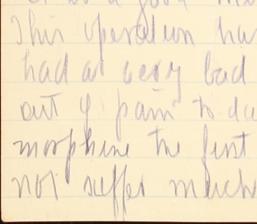 This operation has
had a very bad
out of pain to da
morphine the first
not suffer much